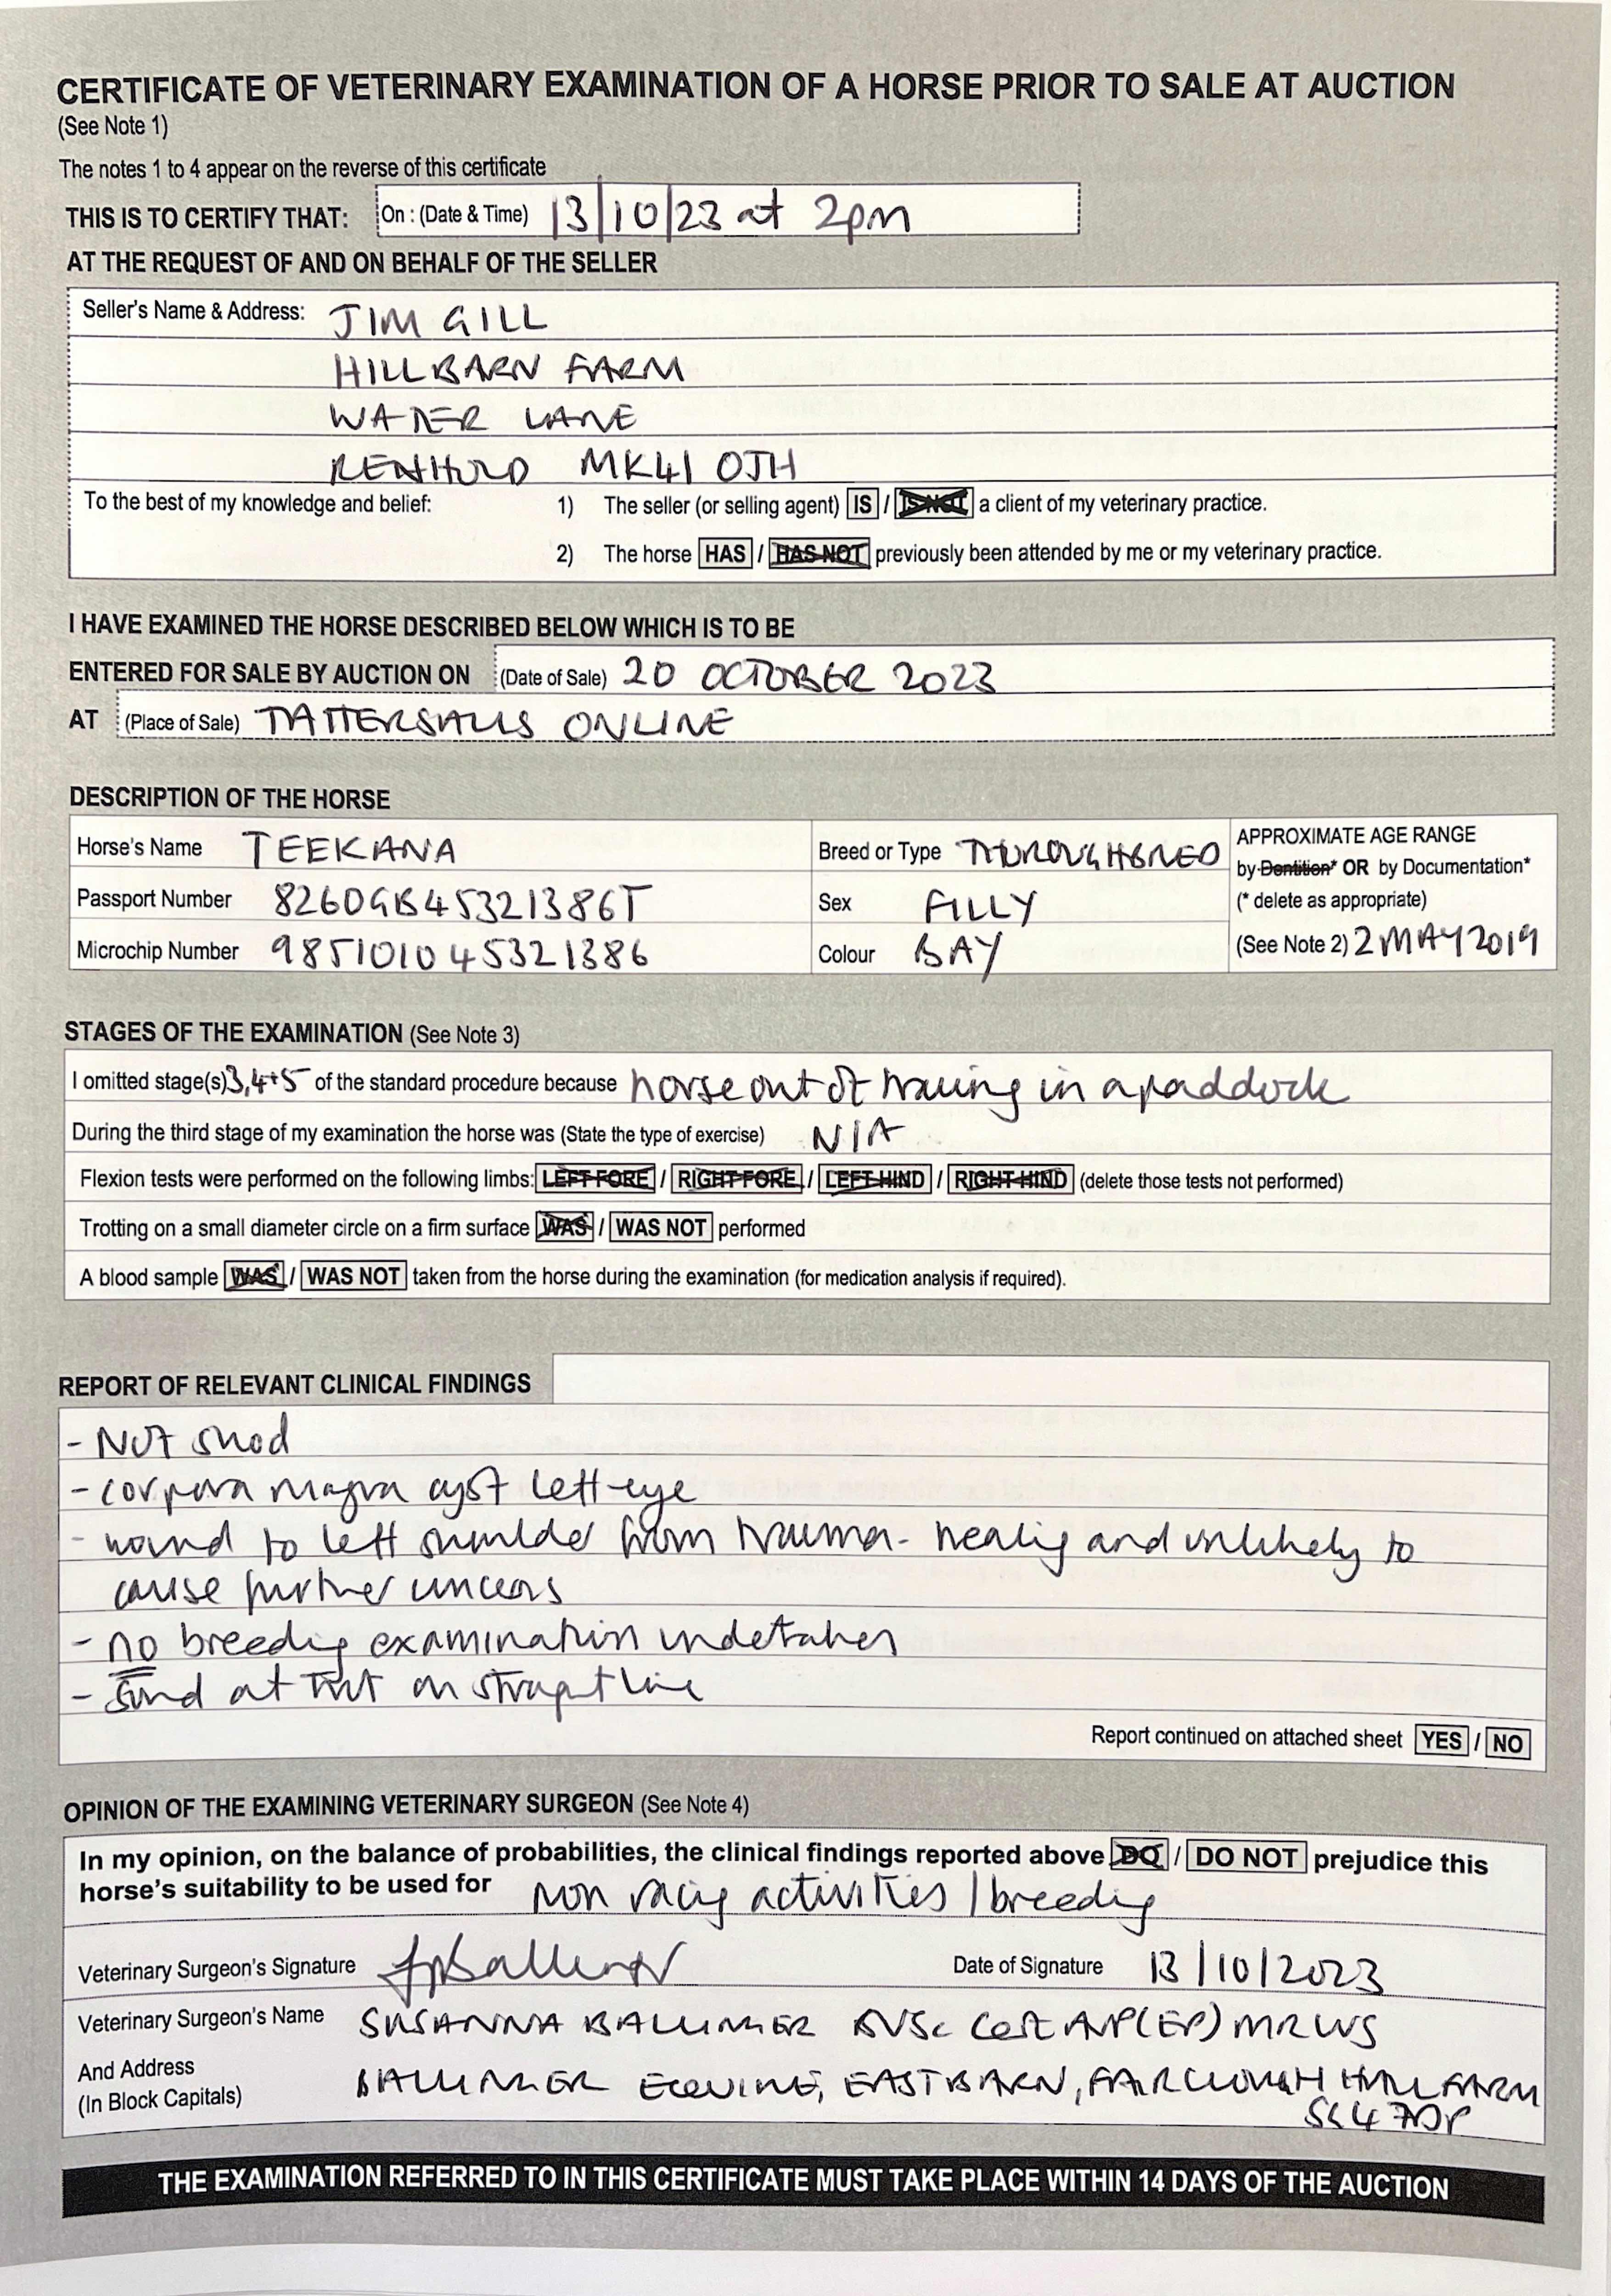 CERTIFICATE OF VETERINARY EXAMINATION OF A HORSE PRIOR TO SALE AT AUCTION
(See Note 1)
The notes 1 to 4 appear on the reverse of this certificate
THIS IS TO CERTIFY THAT: On : (Date & Time) 13/10/23 at 2pm
AT THE REQUEST OF AND ON BEHALF OF THE SELLER
Seller's Name & Address: JIM GILL
HILLBARN FARM
WATER LANE
RENHOLD MK41 0JH
To the best of my knowledge and belief: 1) The seller (or selling agent) IS / IS NOT a client of my veterinary practice.
2) The horse HAS / HAS NOT previously been attended by me or my veterinary practice.
I HAVE EXAMINED THE HORSE DESCRIBED BELOW WHICH IS TO BE
ENTERED FOR SALE BY AUCTION ON (Date of Sale) 20 OCTOBER 2023
AT (Place of Sale) TATTERSALLS ONLINE
DESCRIPTION OF THE HORSE
Horse's Name TEEKANA Breed or Type THOROUGHBRED APPROXIMATE AGE RANGE
by Dentition* OR by Documentation*
Passport Number 8260GB45321386T Sex FILLY (* delete as appropriate)
Microchip Number 985101045321386 Colour BAY (See Note 2) 2 MAY 2019
STAGES OF THE EXAMINATION (See Note 3)
I omitted stage(s) 3,4+5 of the standard procedure because horse out of training in a paddock
During the third stage of my examination the horse was (State the type of exercise) N/A
Flexion tests were performed on the following limbs: LEFT FORE / RIGHT FORE / LEFT HIND / RIGHT HIND (delete those tests not performed)
Trotting on a small diameter circle on a firm surface WAS / WAS NOT performed
A blood sample WAS / WAS NOT taken from the horse during the examination (for medication analysis if required).
REPORT OF RELEVANT CLINICAL FINDINGS
- Not shod
- corpora nigra cyst left eye
- wound to left shoulder from trauma - healing and unlikely to
cause further concerns
- no breeding examination undertaken
- Sound at trot on straight line
Report continued on attached sheet YES / NO
OPINION OF THE EXAMINING VETERINARY SURGEON (See Note 4)
In my opinion, on the balance of probabilities, the clinical findings reported above DO / DO NOT prejudice this
horse's suitability to be used for non racing activities / breeding
Veterinary Surgeon's Signature Date of Signature 13/10/2023
Veterinary Surgeon's Name SUSANNA BALLINGER BVSc Cert AVP(EP) MRCVS
And Address
(In Block Capitals) BALLINGER EQUINE, EAST BARN, FAIRCLOUGH HALL FARM
SG4 7DP
THE EXAMINATION REFERRED TO IN THIS CERTIFICATE MUST TAKE PLACE WITHIN 14 DAYS OF THE AUCTION